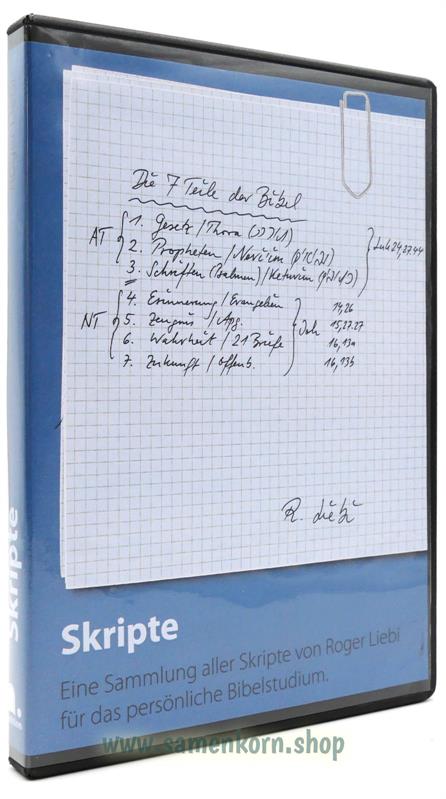 Die 7 Teile der Bibel
AT
1. Gesetz / Thora (תורה)
2. Propheten / Neviim (נביאים)
3. Schriften (Psalmen) / Ketuvim (כתובים)
Luk 24,27.44
NT
4. Erinnerung / Evangelien
5. Zeugnis / Apg.
6. Wahrheit / 21 Briefe
7. Zukunft / Offenb.
Joh
14,26
15,27.27
16,13a
16,13b
R. Liebi
Skripte
Eine Sammlung aller Skripte von Roger Liebi
für das persönliche Bibelstudium.
Skripte
www.samenkorn.shop